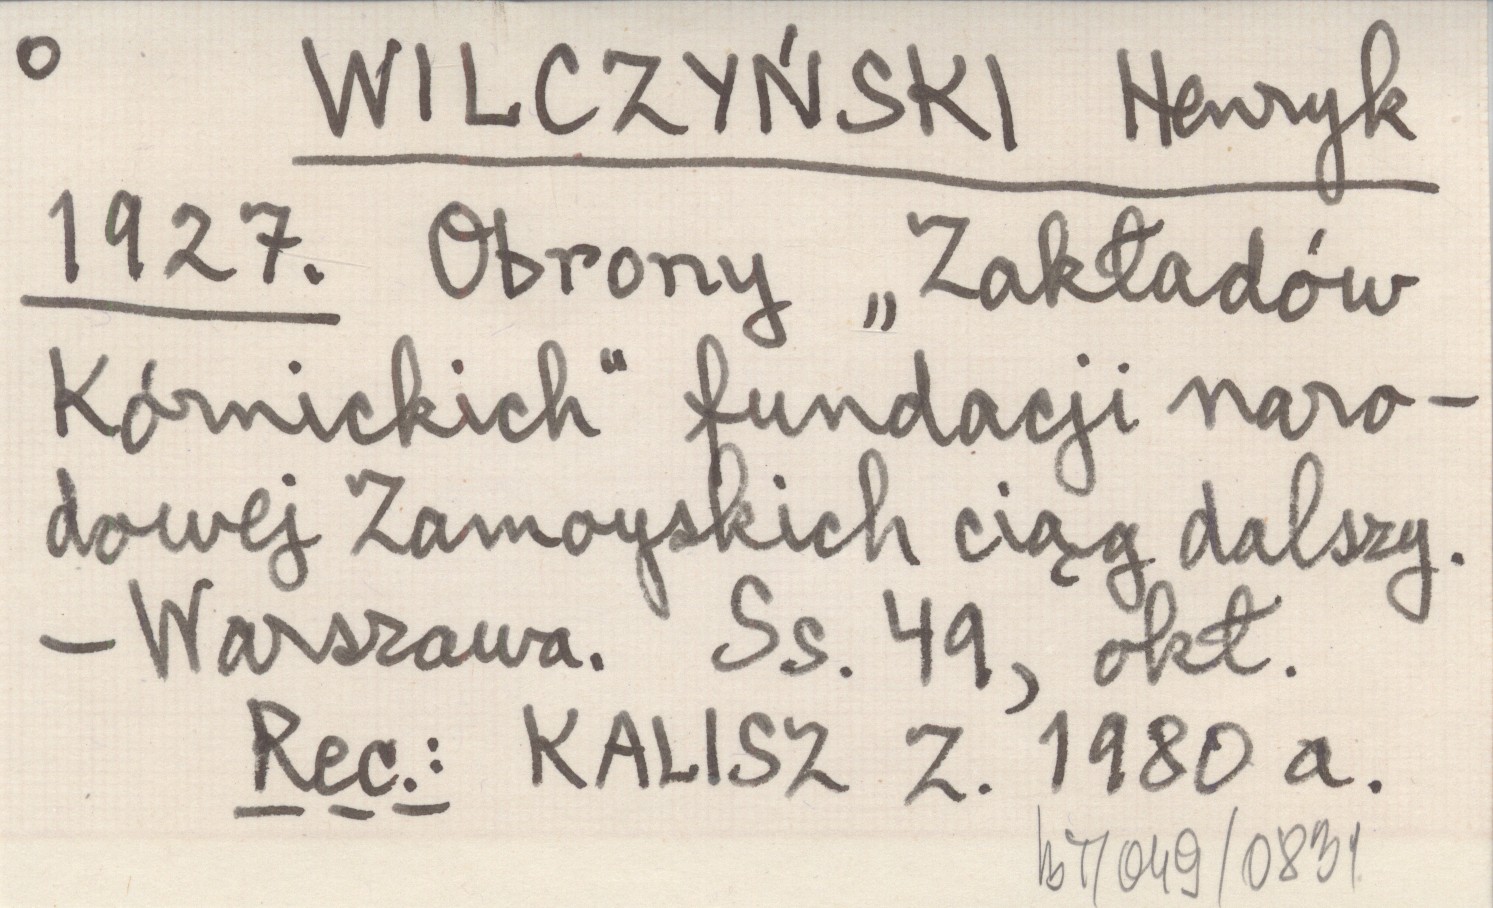 o WILCZYŃSKI Henryk
1927. Obrony „Zakładów
Kórnickich" fundacji naro-
dowej Zamoyskich ciąg dalszy.
- Warszawa. Ss. 49, okł.
Rec.: KALISZ Z. 1980 a.
/049/0831